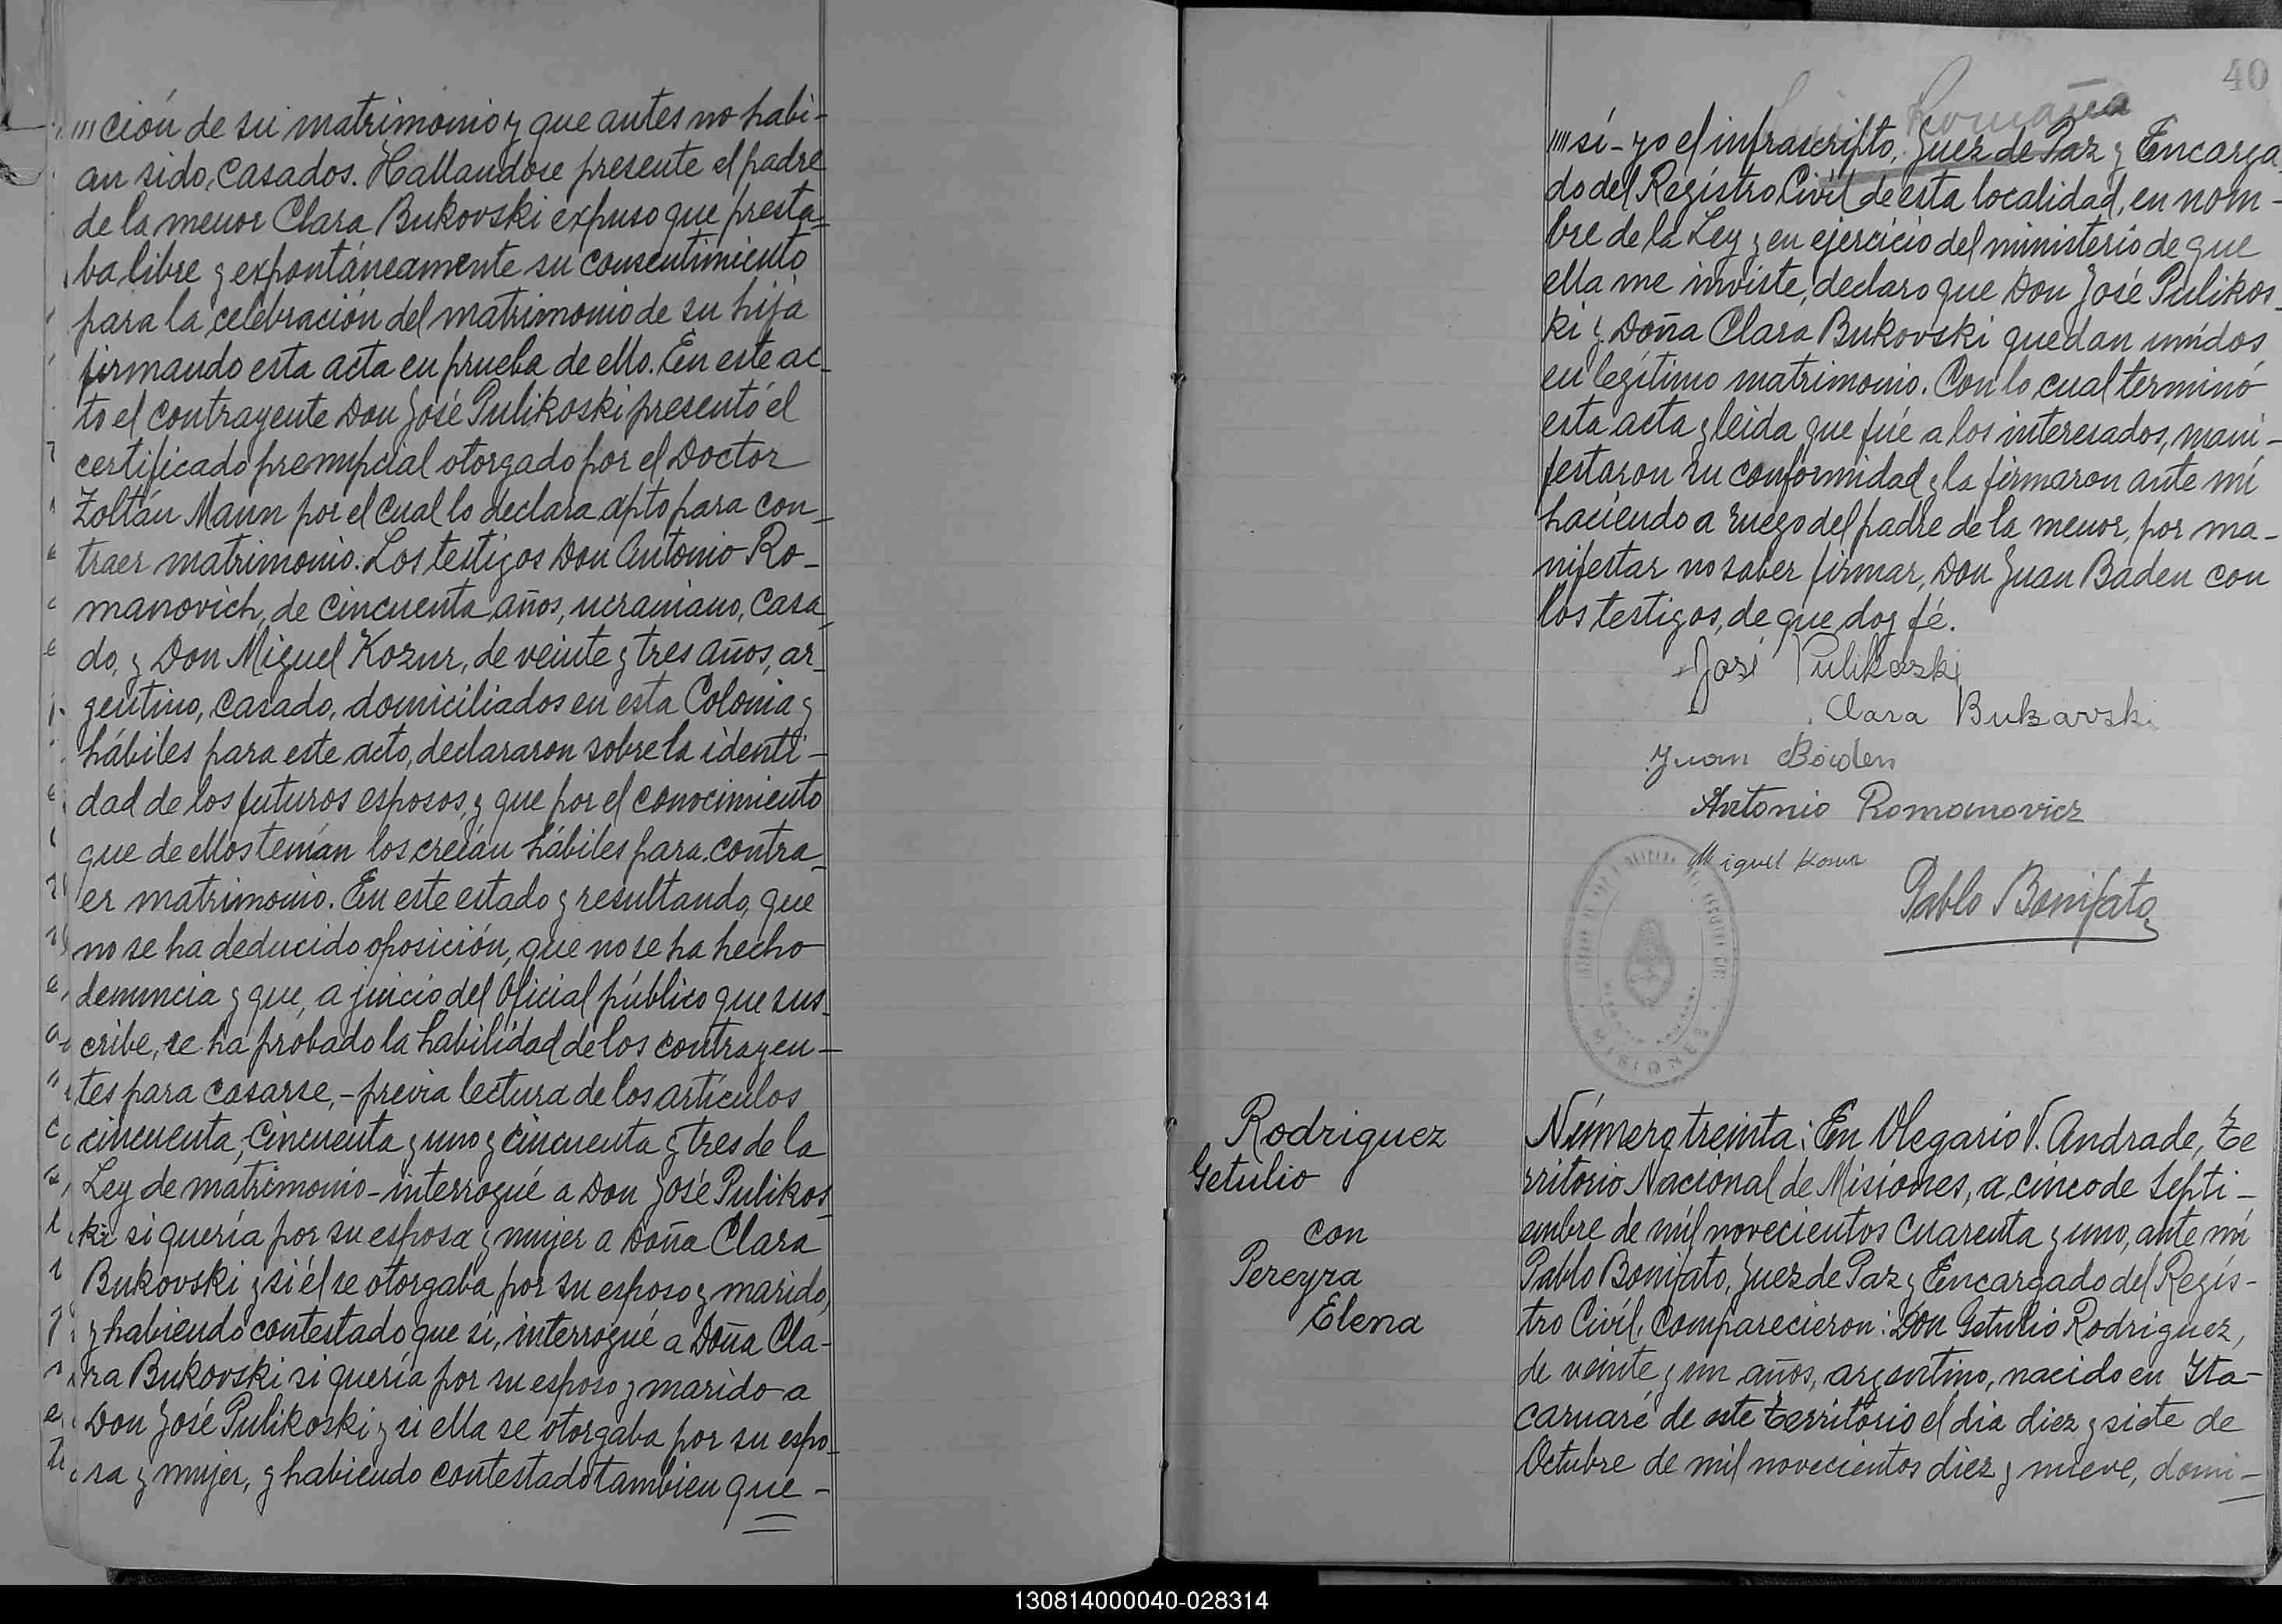 ción de su matrimonio y que antes no habi-
an sido, casados. Hallandose presente el padre
de la menor Clara Bukovski expuso que presta-
ba libre y expontáneamente su consentimiento
para la celebración del matrimonio de su hija
firmando esta acta en prueba de ello. En este ac-
to el contrayente Don José Pulikoski presentó el
certificado prenupcial otorgado por el Doctor
Zoltán Mann por el cual lo declara apto para con-
traer matrimonio. Los testigos Don Antonio Ro-
manovich, de cincuenta años, ucraniano, casa-
do, y Don Miguel Kozur, de veinte y tres años, ar-
gentino, casado, domiciliados en esta Colonia y
hábiles para este acto, declararon sobre la identi-
dad de los futuros esposos, y que por el conocimiento
que de ellos tenían los creían hábiles para contra-
er matrimonio. En este estado y resultando, que
no se ha deducido oposición, que no se ha hecho
denuncia y que, a juicio del Oficial público que sus-
cribe, se ha probado la habilidad de los contrayen-
tes para casarse, - previa lectura de los artículos
cincuenta, cincuenta y uno y cincuenta y tres de la
Ley de matrimonio - interrogué a Don José Pulikos-
ki si quería por su esposa y mujer a Doña Clara
Bukovski y si él se otorgaba por su esposo y marido,
y habiendo contestado que si, interrogué a Doña Cla-
ra Bukovski si quería por su esposo y marido a
Don José Pulikoski y si ella se otorgaba por su espo-
sa y mujer, y habiendo contestado tambien que -
40
Romaña
sí - yo el infrascripto, Juez de Paz y Encarga-
do del Registro Civil de esta localidad, en nom-
bre de la Ley y en ejercicio del ministerio de que
ella me inviste, declaro que Don José Pulikos-
ki y Doña Clara Bukovski quedan unidos
en legítimo matrimonio. Con lo cual terminó
esta acta y leida que fué a los interesados, mani-
festaron su conformidad y la firmaron ante mí
haciendo a ruego del padre de la menor, por ma-
nifestar no saber firmar, Don Juan Baden con
los testigos, de que doy fé.
José Pulikoski
Clara Bukavski
Juan Baiden
Antonio Romanovicz
Miguel Kozur
Pablo Bonifato
Rodriguez
Getulio
con
Pereyra
Elena
Número treinta: En Olegario V. Andrade, Te
rritorio Nacional de Misiones, a cinco de Septi-
embre de mil novecientos cuarenta y uno, ante mí
Pablo Bonifato, Juez de Paz y Encargado del Regis-
tro Civíl, comparecieron: Don Getulio Rodriguez,
de veinte y un años, argentino, nacido en Ita-
caruaré de este territorio el dia diez y siete de
Octubre de mil novecientos diez y nueve, domi-
130814000040-028314